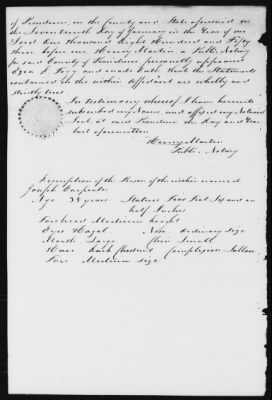 of Providence, in the County and State aforesaid on
the Seventeenth day of January in the Year of our
Lord One thousand Eight Hundred and Fifty
three before me Henry Martin a Public Notary
for said County of Providence personally appeared
Ezra S. and made Oath, that the Statements
contained in the within Affidavit are wholly and
strictly true.
In testimony whereof I have hereunto
subscribed my Name and affixed my Notarial
Seal at said Providence the day and Year
last aforewritten
Henry Martin
Public Notary
Description of the Person of the within named
Joseph Carpenter
Age 38 years Stature Five Feet Six and an
half Inches
Forehead Medium height
Eyes Hazel Nose Ordinary size
Mouth Large Chin Small
Hair Dark Chestnut Complexion Sallow
Face Medium size